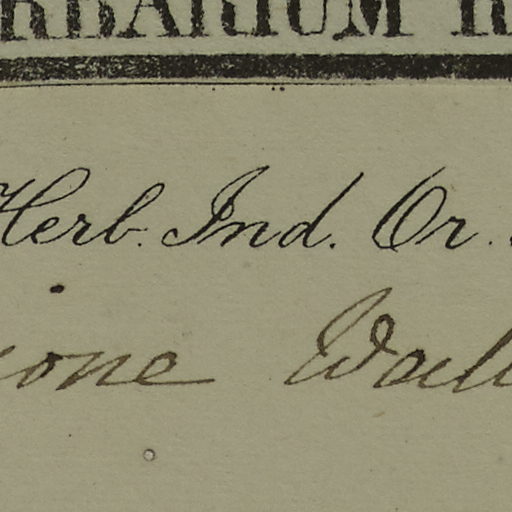 RBARIUM R
Herb. Ind. Or.
ione Wall